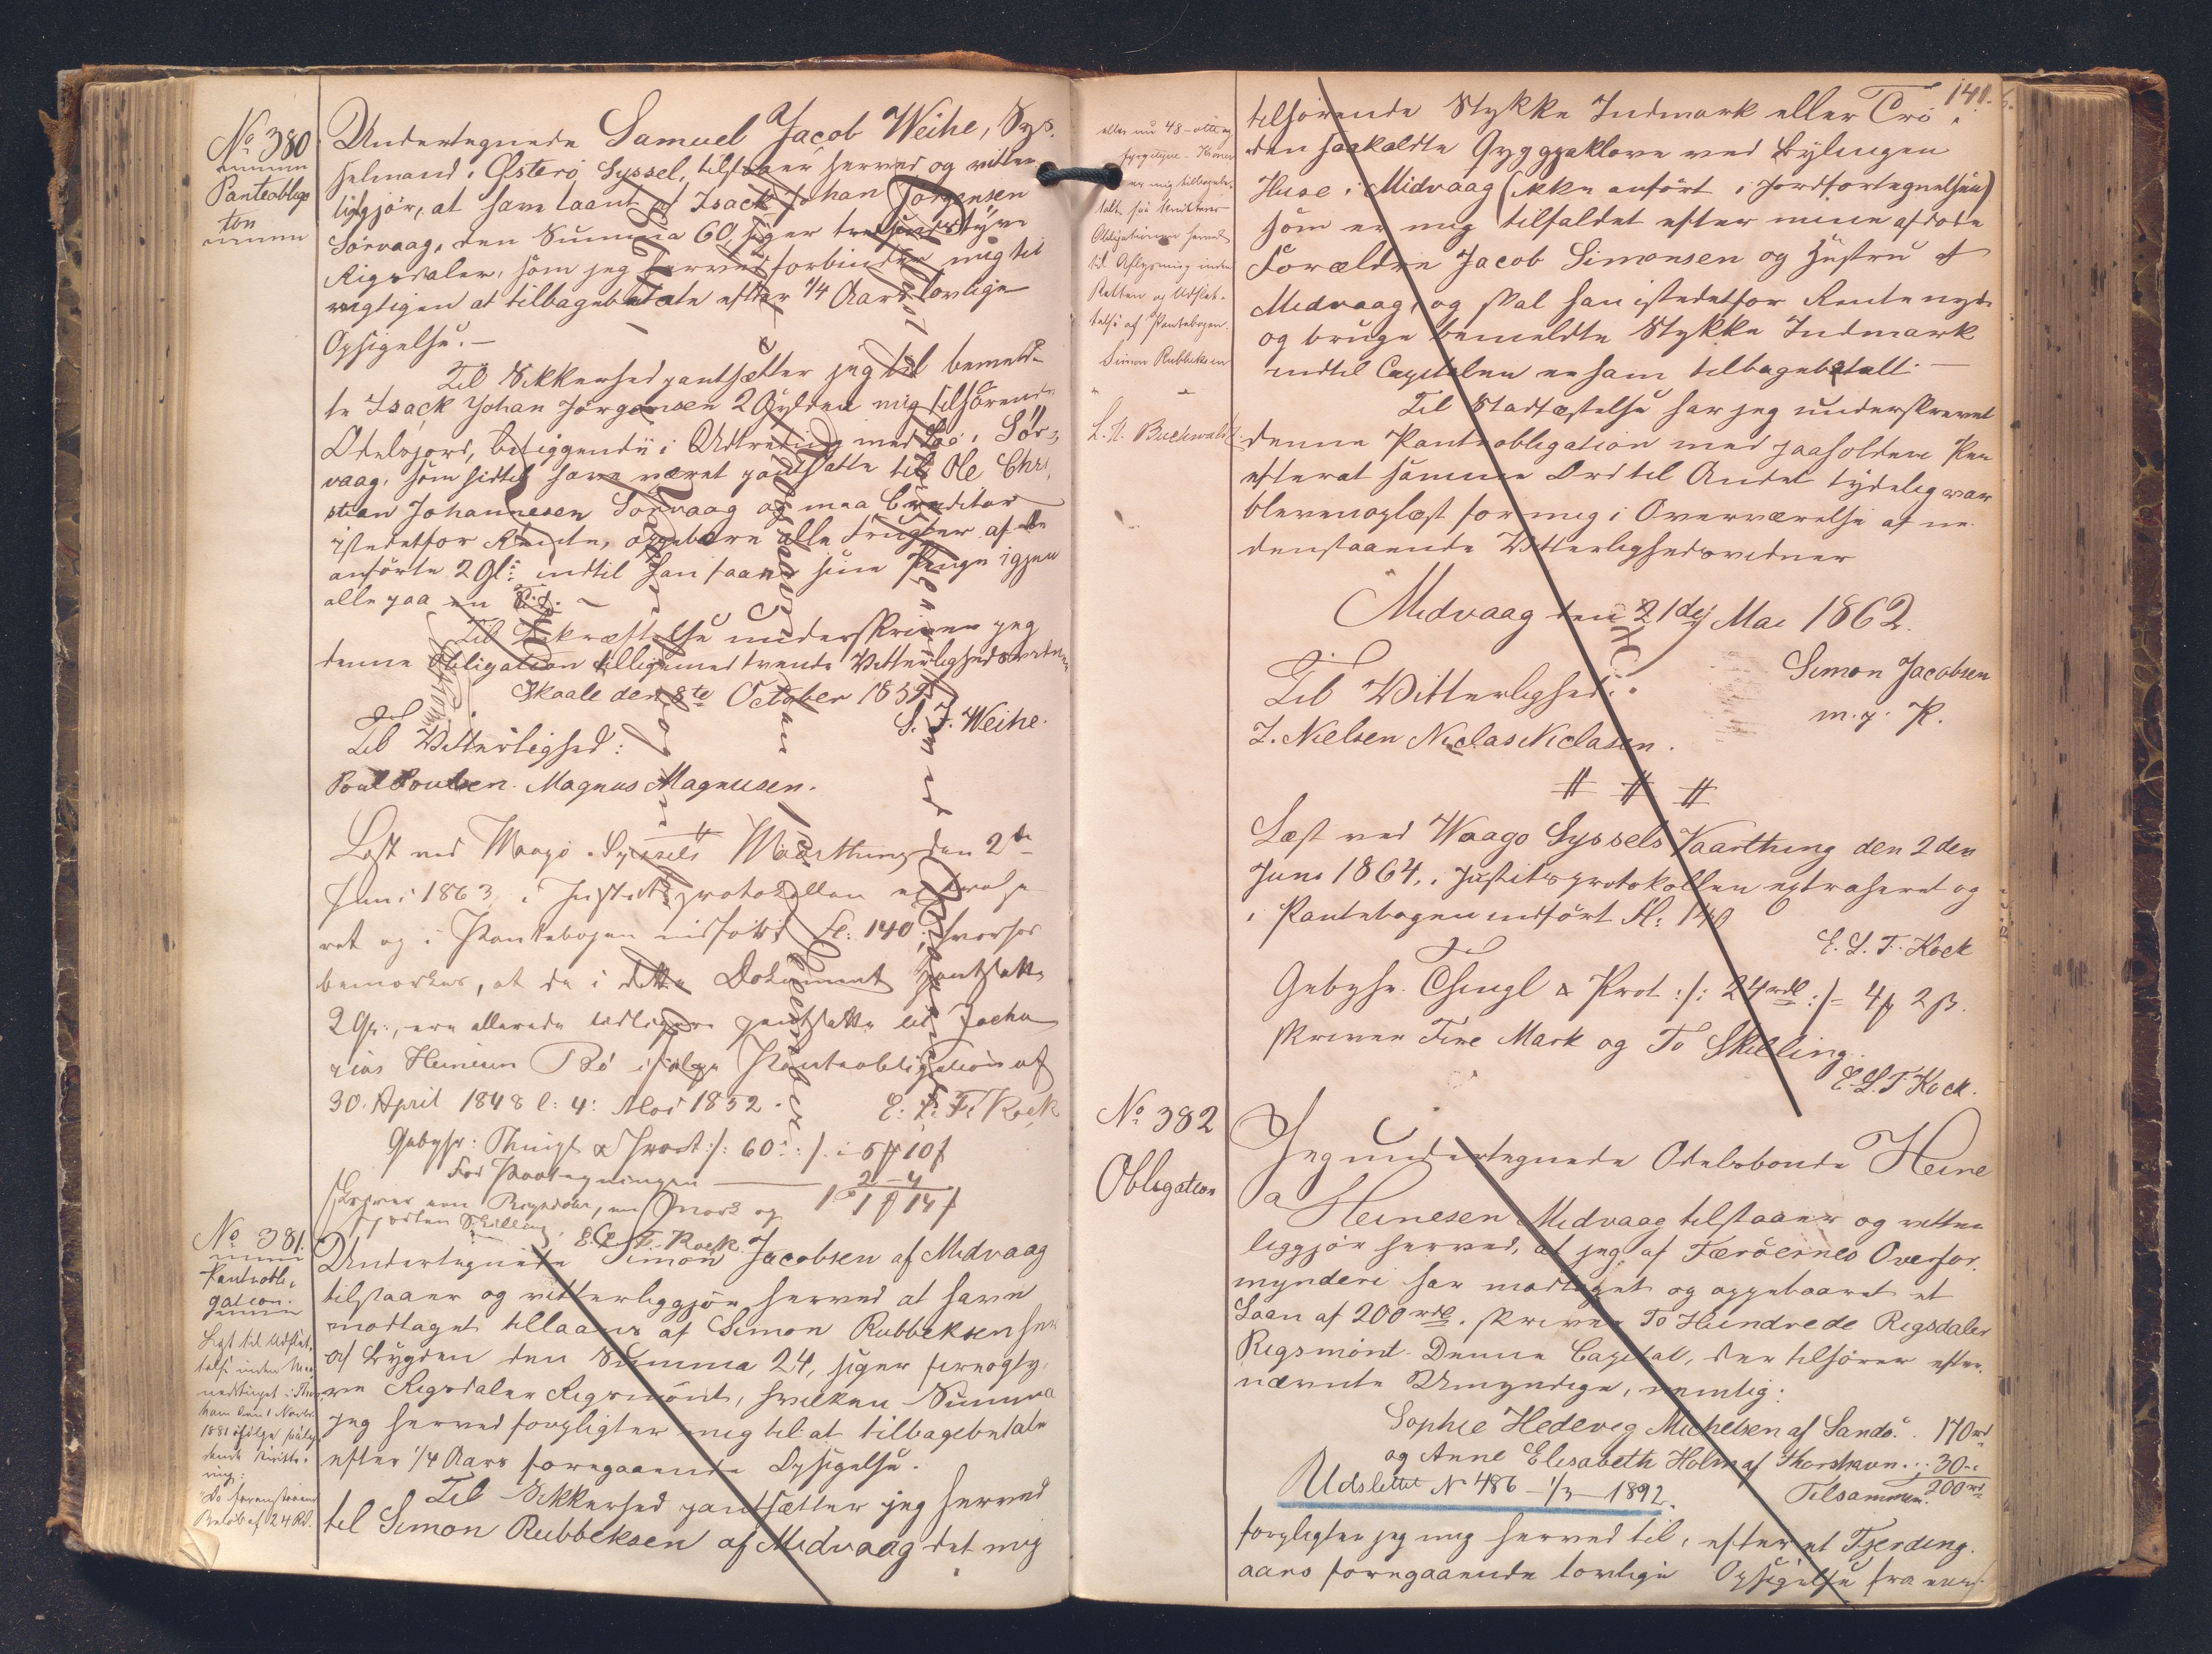 No 380
Panteobliga
tion
Undertegnede Samuel Jacob Weihe, Sys-
selmand i Østerö Syssel, tilstaaer herved og vitter-
liggjör, at have laant af Isack Johan Jörgensen
Sörvaag, den Summa 60, siger tresindstyve
Rigsdaler, som jeg herved forbinder mig til
rigtigen at tilbagebetale efter 1/4 Aars lovlige
Opsigelse. —
Til Sikkerhed pantsætter jeg til bemeld-
te Isack Johan Jörgensen 2 Gylden mig tilhörende
Odelsjord, beliggende i Sör-
vaag, som sidst have været pantsatte til Ole Chri
stian Johannesen Sörvaag og maa Creditor
istedetfor Rente, oppebære alle Frugter af de
anförte 2 Gl: indtil han faaer sine Penge igjen
alle paa en Tid. —
Til Bekræftelse underskriver jeg
denne Obligation tilligemed tvende Vitterlighedsvidner
Skaale den 8te October 1852
S. J. Weihe.
Til Vitterlighed:
Poul Poulsen. Magnus Magnusen.
Læst ved Waagö Syssels Vaarthing den 2de
Juni 1863, i Justitsprotokollen extrahe
ret og i Pantebogen indfört Fl: 140, hvorhos
bemærkes, at de i dette Dokument pantsatte
2 Gl:, ere allerede tidligere pantsatte til Zacha
rias Heinesen Bö ifölge Panteobligation af
30. April 1848 l: 4: Mai 1852.
E. L. F. Kock
Gebyhr: Thingl & Prot :/: 60 :/: 5 10
For Paategningen 2 – 4
1 1 14
skriver een Rigsdaler, een Mark og
fjorten Skilling. E. L. F. Kock.
No 381.
Panteobli-
gation.
Læst til Udslet-
telse inden
havn den 1 Novbr
1881 ifölge
"Da foranstaaende
Belöb af 24 Rd.
Undertegnede Simon Jacobsen af Midvaag
tilstaaer og vitterliggjör herved at have
modtaget tillaans af Simon Rubbeksen her
af Bygden den Summa 24, siger fireogty-
ve Rigsdaler Rigsmönt, hvilken Summa
jeg herved forpligter mig til at tilbagebetale
efter 1/4 Aars foregaaende Opsigelse.
Til Sikkerhed pantsætter jeg herved
til Simon Rubbeksen af Midvaag det mig
eller nu 48 – otte og
fyrgetyve – Kroner
er mig tilbagebe-
talt, saa
Obligationen herved
til Aflysning inden
Retten og Udslet-
telse af Pantebogen.
Simon Rubbeksen
L. N. Buchwaldt
141.
tilhörende Stykke Indmark eller Trö i
den saakaldte ved Bylingen
Huse i Midvaag (ikke anfört i Jordfortegnelsen)
som er mig tilfaldet efter mine afdöde
Forældre Jacob Simonsen og Hustru af
Midvaag, og skal han istedetfor Rente nyde
og bruge bemeldte Stykke Indmark
indtil Capitalen er ham tilbagebetalt. —
Til Stadfæstelse har jeg underskrevet
denne Panteobligation med paaholden Pen
efterat samme Ord til Andet tydelig var
bleven oplæst for mig i Overværelse af ne-
denstaaende Vitterlighedsvidner
Midvaag den 21de Mai 1862.
Simon Jacobsen
m. p. P.
Til Vitterlighed:
Z. Nielsen Niclas Niclasen.
# # #
Læst ved Waagö Syssels Vaarthing den 2den
Juni 1864, i Justitsprotokollen extraheret og
i Pantebogen indfört Fl: 140
E. L. F. Kock
Gebyhr Thingl & Prot :/: 24 rdl :/= 4 2 ß.
skriver Fire Mark og To Skilling.
E. L. F. Kock.
No 382
Obligation
Jeg undertegnede Odelsbonde Heine
Heinesen Midvaag tilstaaer og vitter
liggjör herved, at jeg af Færöernes Overfor-
mynderi har modtaget og oppebaaret et
Laan af 200 rdl. skriver To Hundrede Rigsdaler
Rigsmönt. Denne Capital, der tilhörer efter-
nævnte Umyndige, nemlig:
Sophie Hedevig Michelsen af Sandö. 170 rd
og Anne Elisabeth Holm af Thorshavn.. 30 –
Tilsammen. 200 rd
Udslettet N 486 – 1/3 – 1892.
forpligter jeg mig herved til, efter et Fjerding-
aars foregaaende lovlige Opsigelse fra een